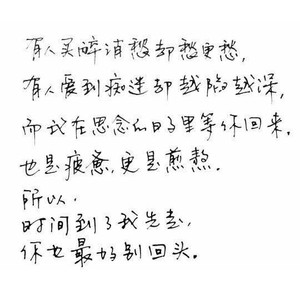 有人买醉消愁却愁更愁,
有人爱到痴迷却越陷越深,
而我在思念的日子里等你回来,
也是疲惫,更是煎熬.
所以,
时间到了我先走,
你也最好别回头。